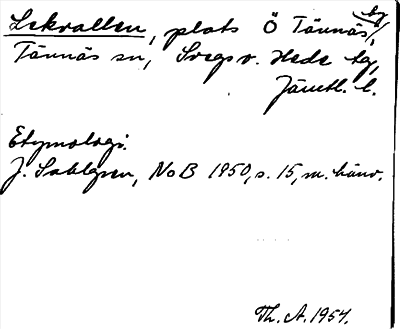 Lekvallen, plats Ö Tännäs by,
Tännäs sn, Svegs o. Hede tg,
Jämtl. l.
Etymologi.
J. Sahlgren, NoB 1950, s. 15, m. hänv.
Th. A. 1954.